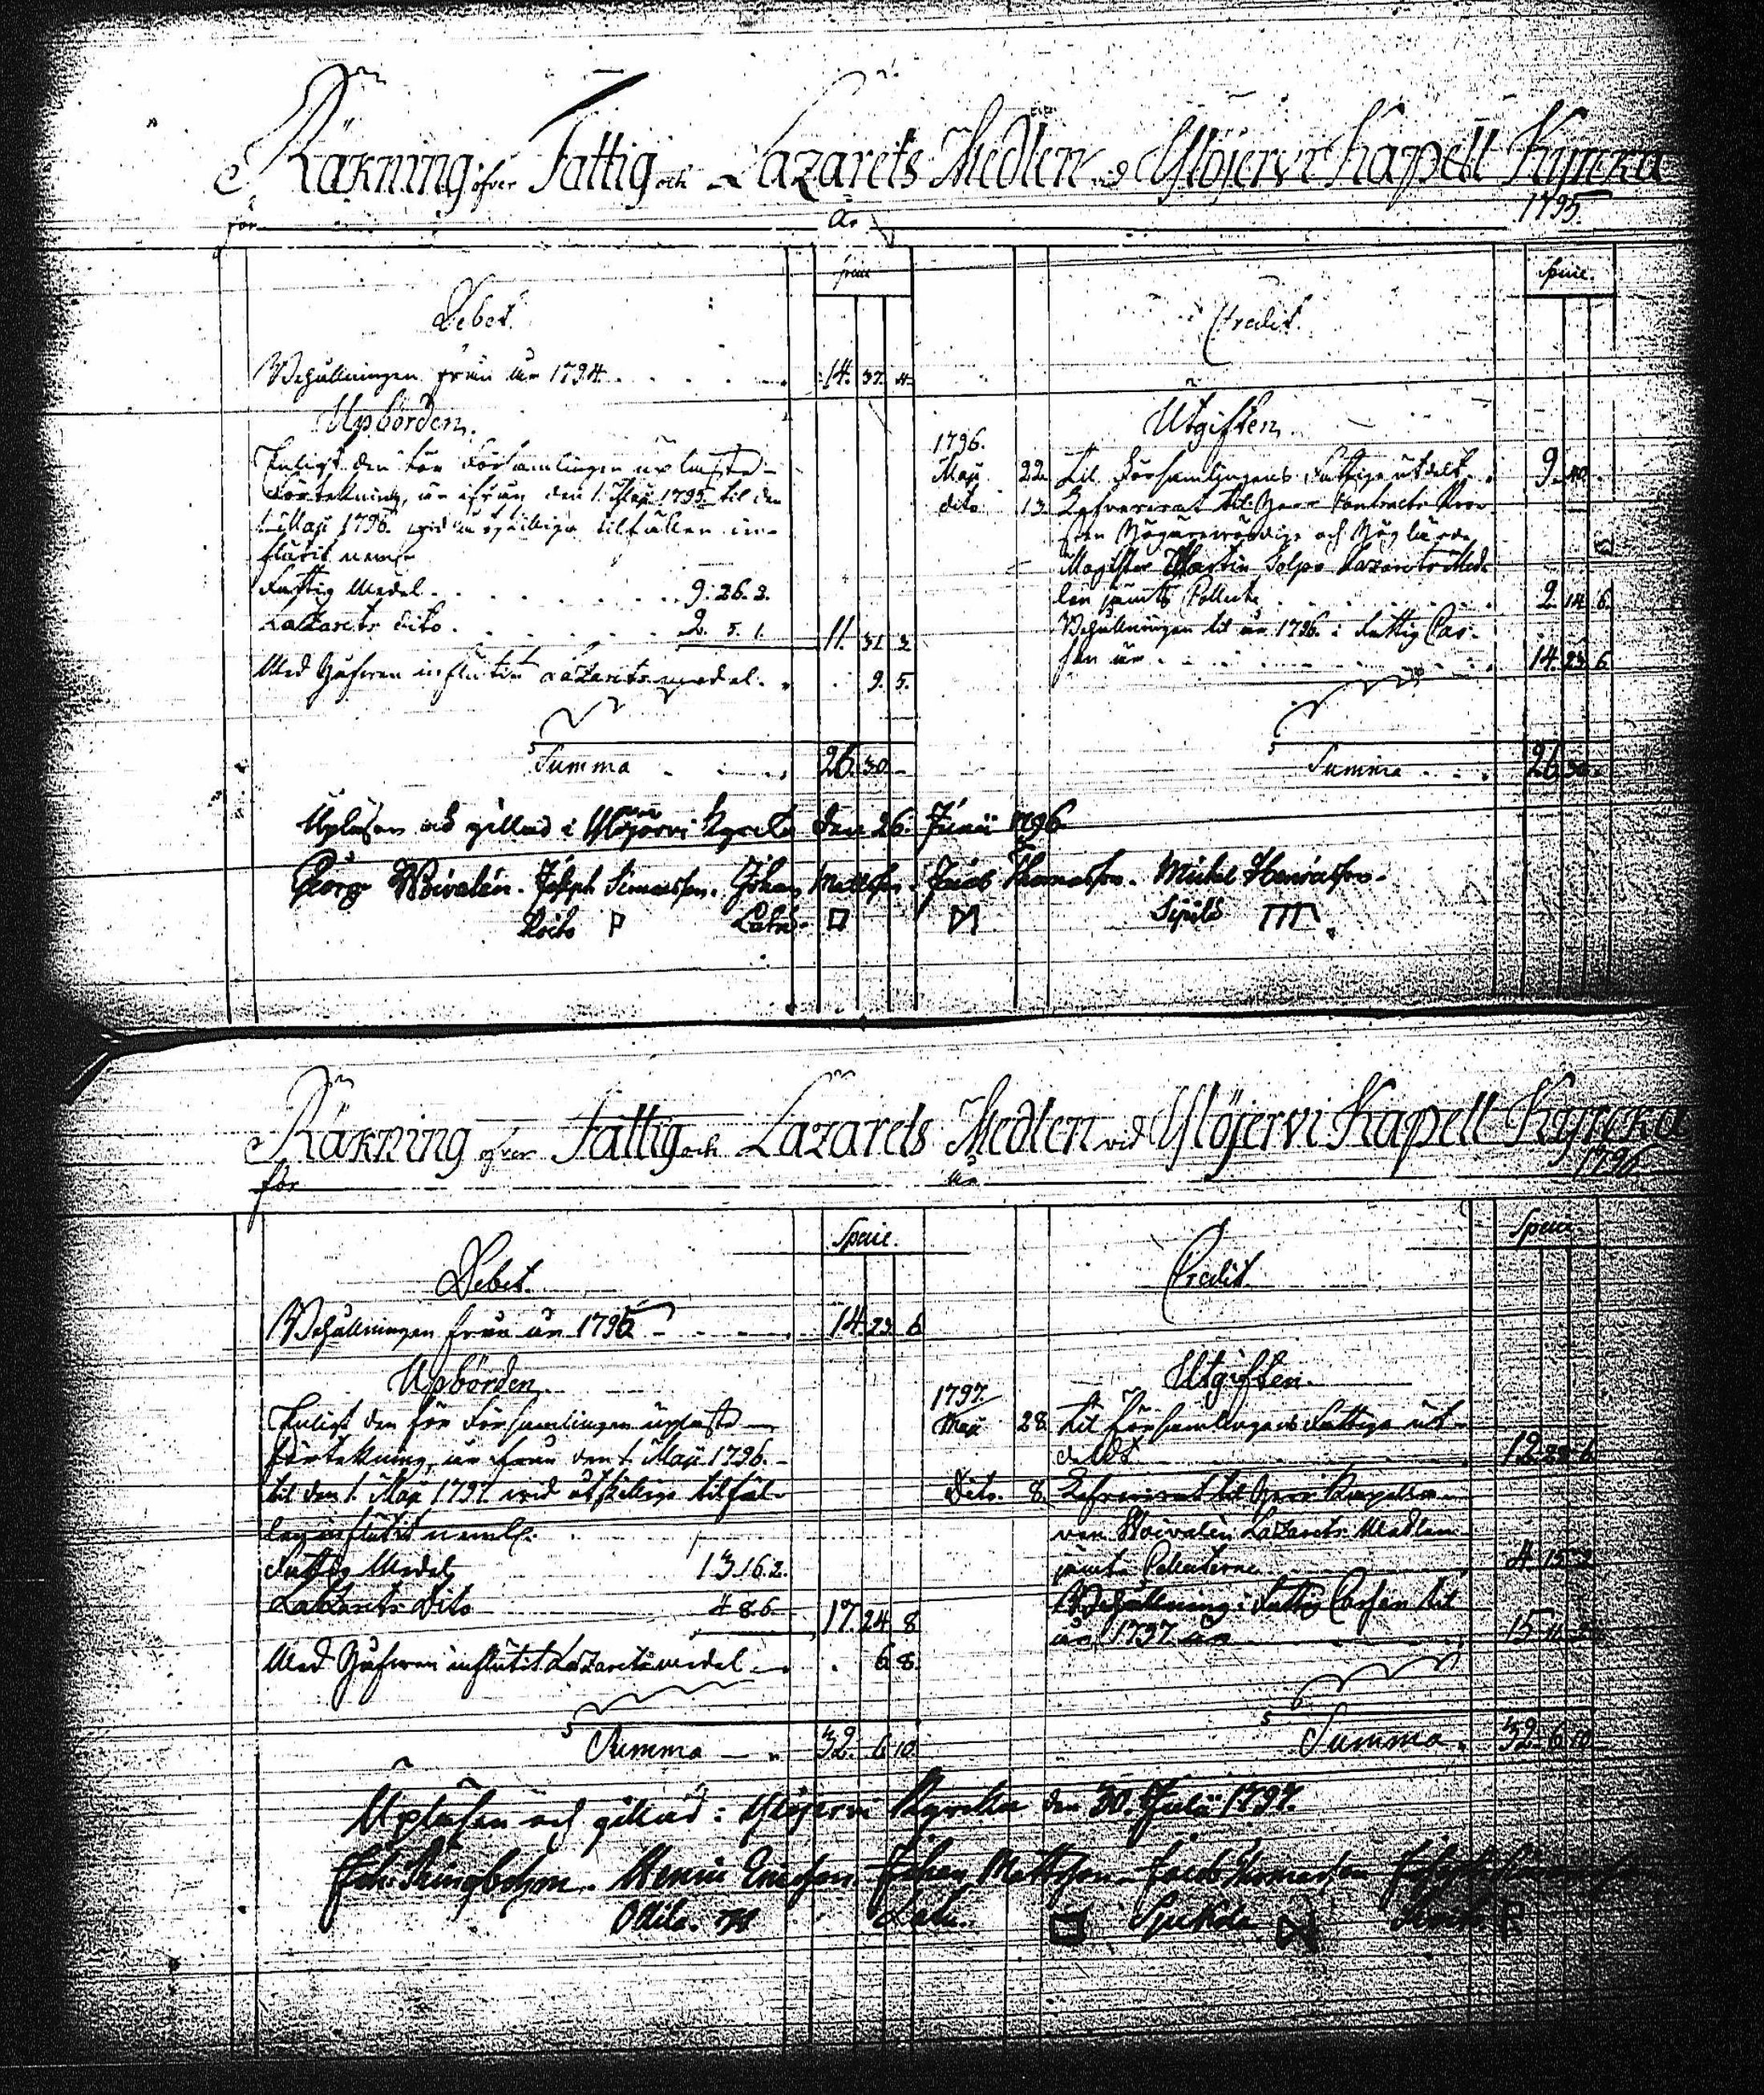 Räkning öfver Fattig och Lazarets Medlen vid Ylöjervi Kapell Kyrcka
för År 1795
Debet. Specie
Behållningen från år 1794 14. 37. 4
Upbörden.
Enligt den för Församlingen uplæste
Förtekning, är ifrån den 1. Maji 1795 til den
1. Maji 1796. wid åtskillige tilfällen in-
flutit neml.
Fattig Medel 9. 26. 2.
Lazarets dito 2. 5. 1. 11. 31. 3
Med Håfwen influtit Lazarets medel 9. 5.
Summa 26. 30 -
Credit. Specie.
Utgiften.
1796.
Maji 22. Til Församlingens Fattige utdelt 9. 40
dito 13. Lefvererat til Herr Contracts Pro-
sten Högärewördige och Höglärde
Magister Martin Tolpo Lazarets Med-
len jämte Collecte 2. 14. 6.
Behållningen til år 1796. i Fattig Cas-
san är 14. 23. 6
Summa 26. 30 -
Upläsen och gillad i Ylöjervi Kyrcka den 26. Junii 1796
Georg Woivalén. Joseph Simonsson. Johan Mattsson. Jacob Thomasson. Michel Henricsson.
Keito Latu Sipilä
Räkning öfver Fattig och Lazarets Medlen vid Ylöjervi Kapell Kyrcka
för år 1796
Debet. Specie.
Behållningen från år 1795 14. 23. 6
Upbörden.
Enligt den för Församlingen uplæste
förtekning, är ifrån den 1. Maji 1796.
til den 1. Maji 1797. wid åtskillige tilfäl-
len influtit neml.
Fattig Medel 13. 16. 2.
Lazarets Dito 4. 8. 6. 17. 24. 8
Med Håfwen influtit Lazarets medel 6. 8.
Summa 32. 6. 10
Credit. Specie
Utgiften.
1797.
Maji 28. Til Församlingens Fattiga ut-
delt 12. 28. 6
Dito. 8. Lefvererat til Herr Kapella-
nen Woivalén Lazarets Medlen
jämte Collecterne 4. 15. 2
Behållning i Fattig Cassan til
år 1797 är 15. 11. 2
Summa 32. 6. 10
Upläsen och gillad i Ylöjervi Kyrcka den 30. Julii 1797.
Joh. Ringbohm. Henric Ericsson Johan Mattsson Jacob Thomasson Joseph
Ollila. Latu.